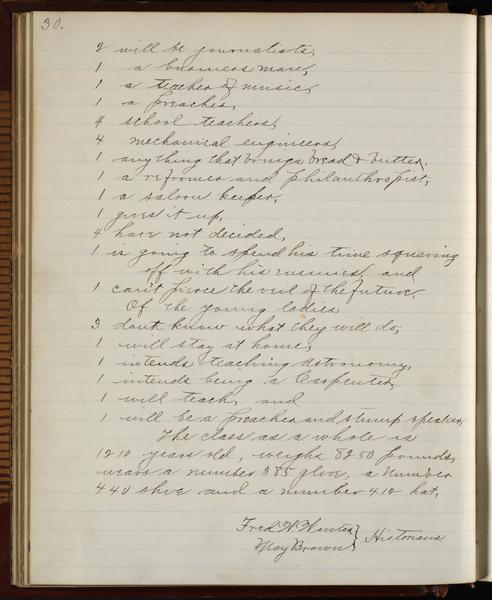 30.
2 will be journalists,
1 a business man,
1 a teacher of music,
1 a preacher,
4 school teachers,
4 mechanical engineers,
1 anything that brings bread & butter,
1 a reformer and philanthropist,
1 a saloon keeper,
1 gives it up,
4 have not decided,
1 is going to spend his time squaring
off with his enemies, and
1 can't pierce the veil of the future.
Of the young ladies
3 don't know what they will do,
1 will stay at home,
1 intends teaching astronomy,
1 intends being a Carpenter,
1 will teach, and
1 will be a preacher and stump speaker.
The class as a whole is
1210 years old, weighs 8250 pounds,
wears a number 385 glove, a number
440 shoe and a number 412 hat.
Fred W. Winter } Historians
May Brown